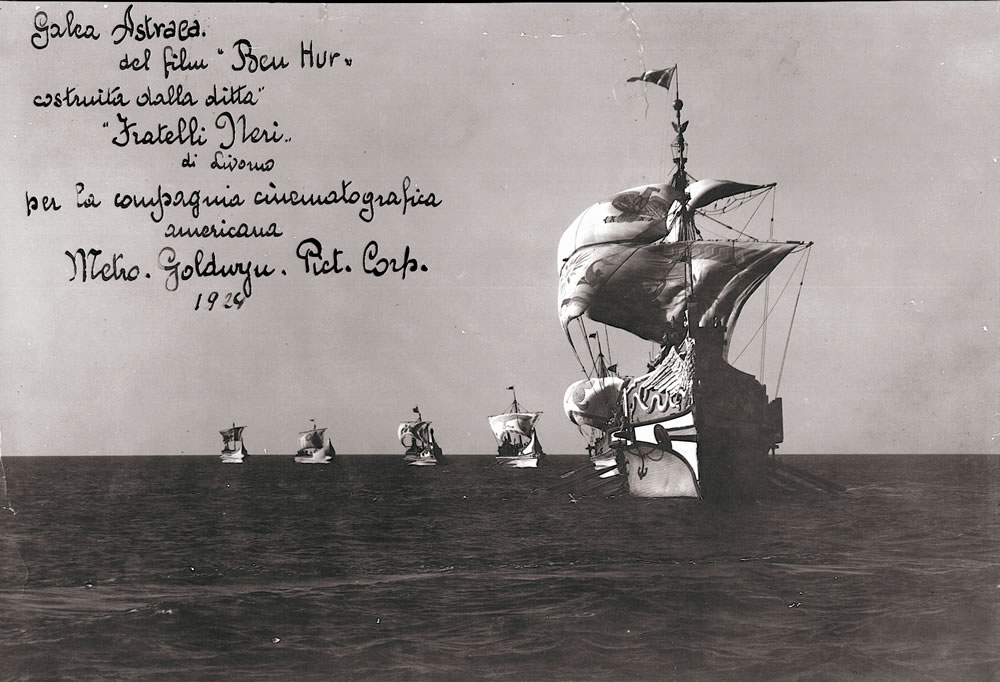 Galea Astraea.
del film "Ben Hur"
costruita dalla ditta"
"Fratelli Neri"
di Livorno
per la compagnia cinematografica
americana
Metro. Goldwyn. Pict. Corp.
1924